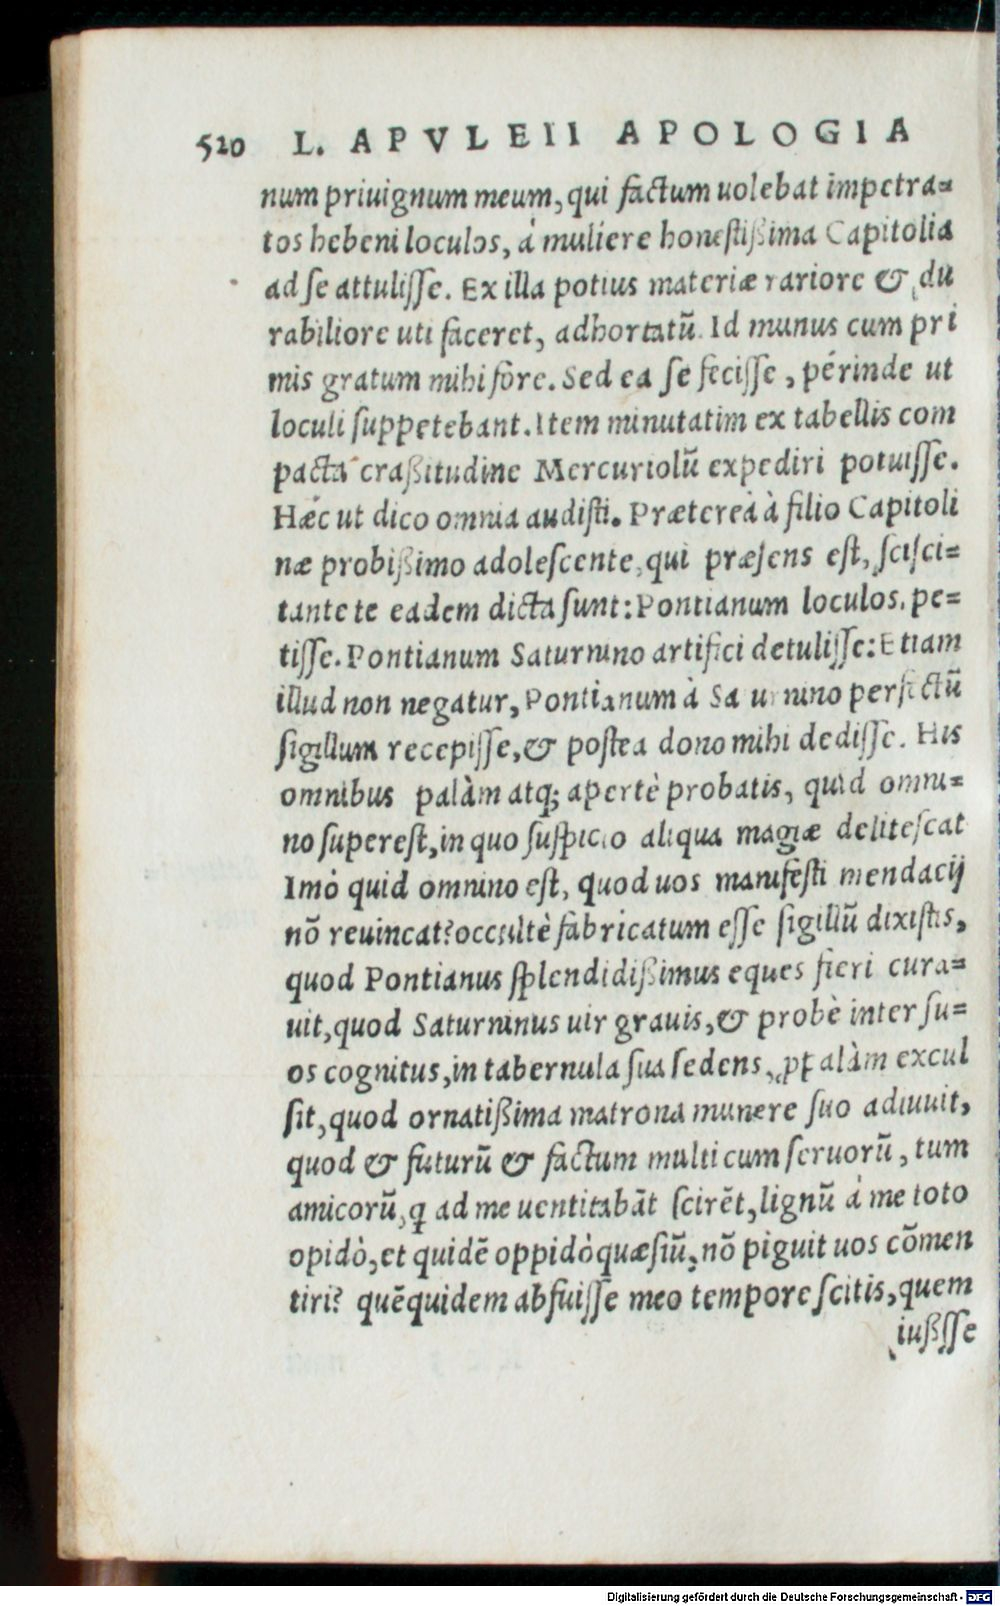 520 L. APVLEII APOLOGIA
num priuignum meum, qui factum uolebat impetra=
tos hebeni loculos, á muliere honestißima Capitolia
ad se attulisse. Ex illa potius materiæ rariore & du
rabiliore uti faceret, adhortatū. Id munus cum pri
mis gratum mihi fore. Sed ea se fecisse, périnde ut
loculi suppetebant. Item minutatim ex tabellis com
pacta craßitudine Mercuriolū expediri potuisse.
Hæc ut dico omnia audisti. Prætereà à filio Capitoli
næ probißimo adolescente, qui præsens est, scisci=
tante te eadem dicta sunt: Pontianum loculos. pe=
tisse. Pontianum Saturnino artifici detulisse: Etiam
illud non negatur, Pontianum à Sa urnino perfectū
sigillum recepisse, & postea dono mihi dedisse. His
omnibus palàm atq; apertè probatis, quid omni=
no superest, in quo suspicio aliqua magiæ delitescat
Imò quid omnino est, quod uos manifesti mendacij
nō reuincat? occultè fabricatum esse sigillū dixistis,
quod Pontianus splendidißimus eques fieri cura=
uit, quod Saturninus uir grauis, & probè inter su=
os cognitus, in tabernula sua sedens, ꝓpalàm excul
sit, quod ornatißima matrona munere suo adiuuit,
quod & futurū & factum multi cum seruorū, tum
amicorū, q ad me uentitabāt scirēt, lignū á me toto
opidò, et quidē oppidò quæsiū, nō piguit uos cōmen
tiri? quē quidem abfuisse meo tempore scitis, quem
iußisse
Digitalisierung gefördert durch die Deutsche Forschungsgemeinschaft - DFG